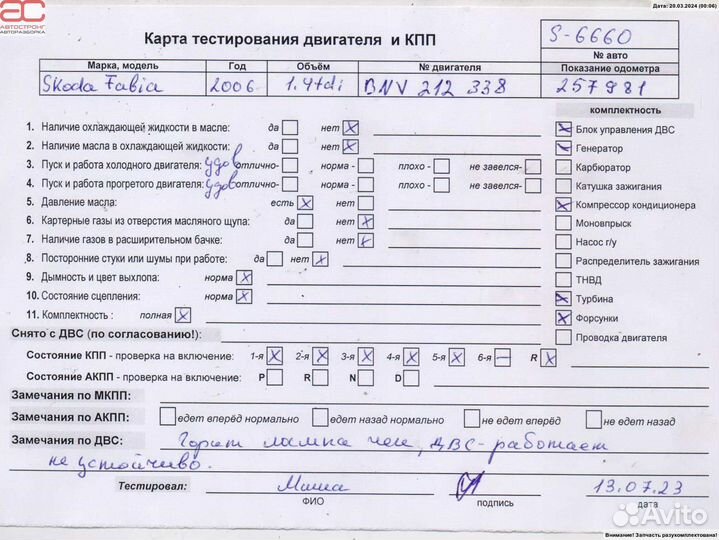 Дата: 20.03.2024 (00:06)
АС
АВТОСТРОНГ
АВТОРАЗБОРКА
Карта тестирования двигателя и КПП
S-6660
№ авто
Марка, модель Год Объём № двигателя Показание одометра
Skoda Fabia 2006 1.4tdi BNV 212 338 257981
комплектность
1. Наличие охлаждающей жидкости в масле: да нет X
2. Наличие масла в охлаждающей жидкости: да нет X
3. Пуск и работа холодного двигателя: удов отлично- норма - плохо - не завелся-
4. Пуск и работа прогретого двигателя: удов отлично- норма - плохо - не завелся-
5. Давление масла: есть X нет
6. Картерные газы из отверстия масляного щупа: да нет X
7. Наличие газов в расширительном бачке: да нет X
8. Посторонние стуки или шумы при работе: да нет X
9. Дымность и цвет выхлопа: норма X
10. Состояние сцепления: норма X
11. Комплектность : полная X
X Блок управления ДВС
X Генератор
Карбюратор
Катушка зажигания
X Компрессор кондиционера
Моновпрыск
Насос г/у
Распределитель зажигания
ТНВД
X Турбина
X Форсунки
Проводка двигателя
Снято с ДВС (по согласованию!):
Состояние КПП - проверка на включение: 1-я X 2-я X 3-я X 4-я X 5-я X 6-я — R X
Состояние АКПП - проверка на включение: P R N D
Замечания по МКПП:
Замечания по АКПП: едет вперёд нормально едет назад нормально не едет вперёд не едет назад
Замечания по ДВС: Горит лампа чек, ДВС-работает
не устойчиво.
Тестировал: Миша 13.07.23
ФИО подпись дата
Avito
Внимание! Запчасть разукомплектована!